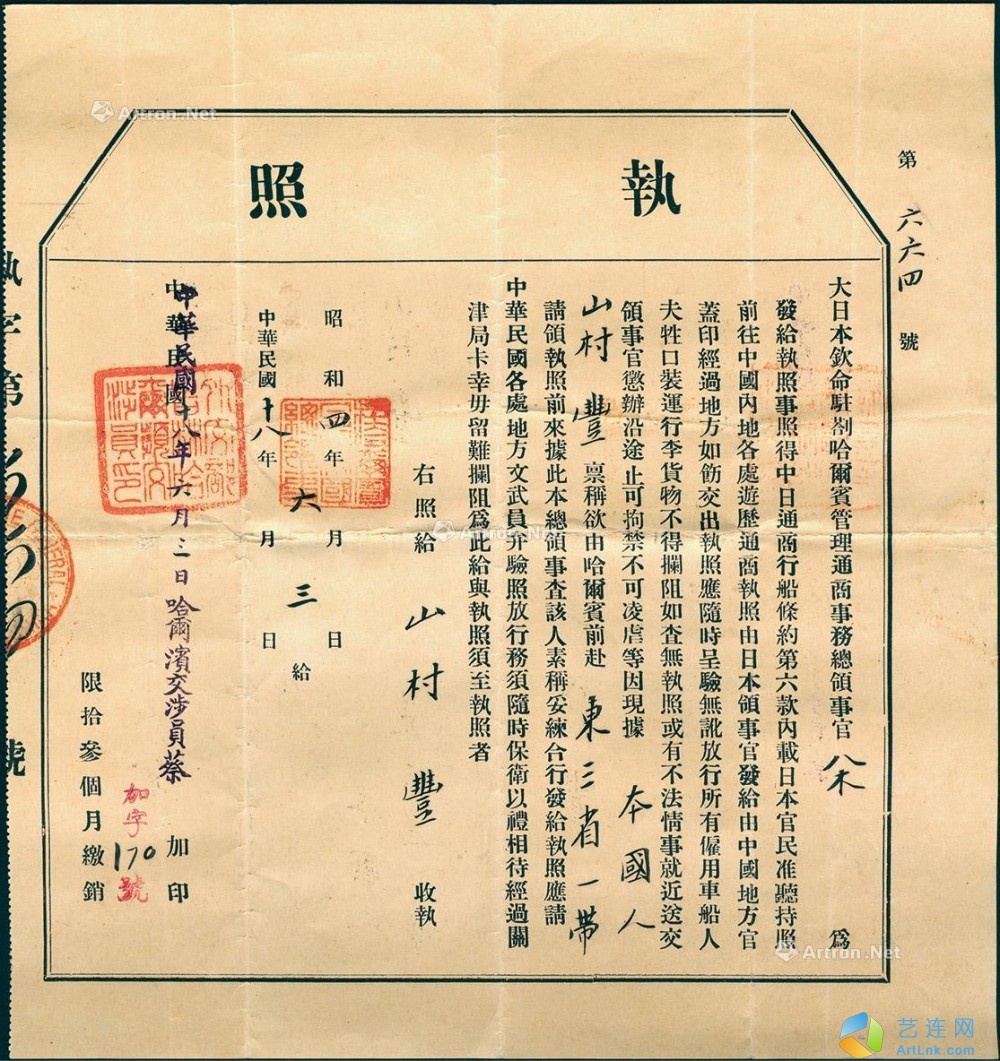 第六六四號
執照
大日本欽命駐劄哈爾賓管理通商事務總領事官八木爲
發給執照事照得中日通商行船條約第六款內載日本官民准聽持照
前往中國內地各處遊歷通商執照由日本領事官發給由中國地方官
蓋印經過地方如飭交出執照應隨時呈驗無訛放行所有僱用車船人
夫牲口裝運行李貨物不得攔阻如查無執照或有不法情事就近送交
領事官懲辦沿途止可拘禁不可凌虐等因現據 本國人
山村豐稟稱欲由哈爾賓前赴 東三省一帶
請領執照前來據此本總領事查該人素稱妥練合行發給執照應請
中華民國各處地方文武員弁驗照放行務須隨時保衛以禮相待經過關
津局卡幸毋留難攔阻爲此給與執照須至執照者
右照給 山村豐 收執
昭和四年 月 日
六 三 給
中華民國十八年 月 日
中華民國十八年六月三日哈爾濱交涉員蔡 加印
加字170號
限拾參個月繳銷
執字第 號
Artron.Net
Artron.Net
Artron.Net
艺连网
ArtLnk.com